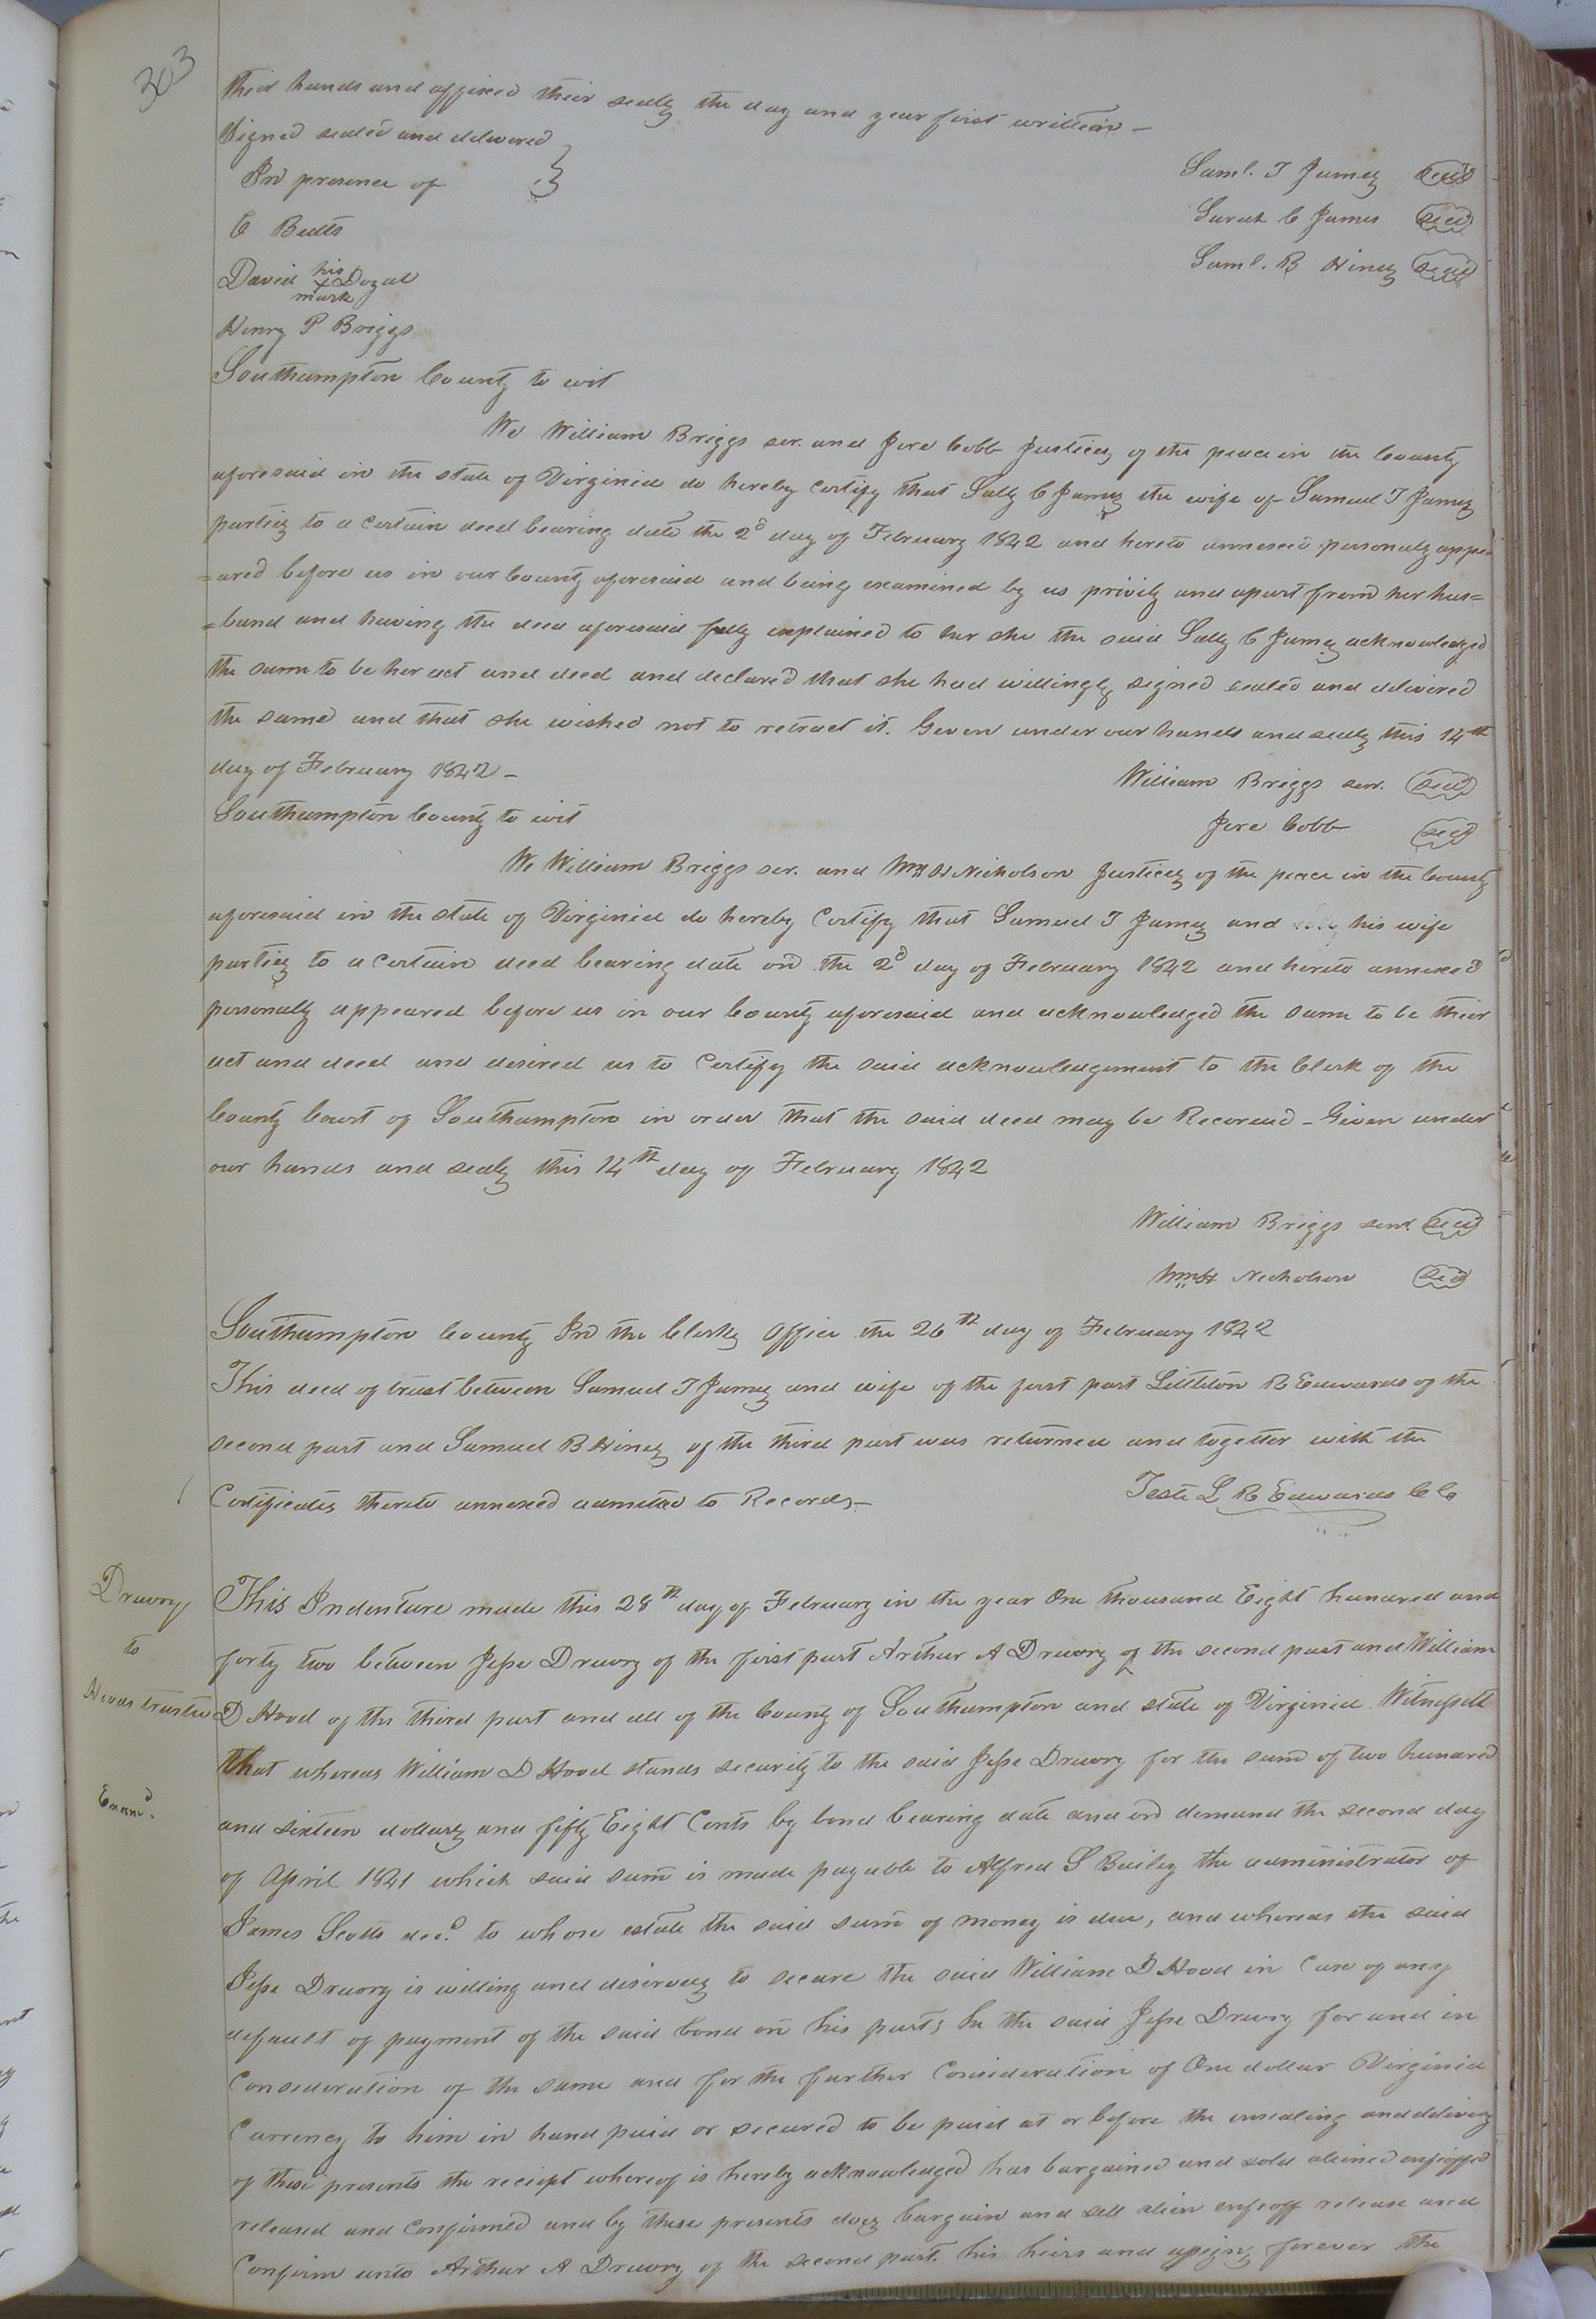 303
their hands and affixed their seals the day and year first written —
Signed sealed and delivered
In presence of
E Butts
David his x mark Dozal
Henry P Briggs
Saml. T James seal
Sarah C James seal
Saml. B Hines seal
Southampton County to wit
We William Briggs ser. and Jere Cobb Justices of the peace in the County
aforesaid in the state of Virginia do hereby Certify that Sally C James the wife of Samuel T James
parties to a certain deed bearing date the 2d day of February 1842 and hereto annexed personaly appe
=ared before us in our County aforesaid and being examined by us privily and apart from her hus=
=band and having the deed aforesaid fully explained to her she the said Sally C James acknowledged
the same to be her act and deed and declared that she had willingly signed sealed and delivered
the same and that she wished not to retract it. Given under our hands and seals this 14th
day of February 1842 —
William Briggs senr. seal
Jere Cobb seal
Southampton County to wit
We William Briggs ser. and Wm H Nicholson Justices of the peace in the County
aforesaid in the state of Virginia do hereby Certify that Samuel T James and his wife
parties to a Certain deed bearing date on the 2d day of February 1842 and hereto annexed
personally appeared before us in our County aforesaid and acknowledged the same to be their
act and deed and desired us to Certify the said acknowledgement to the Clerk of the
County Court of Southampton in order that the said deed may be Recorded — Given under
our hands and seals this 14th day of February 1842
William Briggs senr seal
Wm H Nicholson seal
Southampton County In the Clerks Office the 26th day of February 1842
This deed of trust between Samuel T James and wife of the first part Littleton R Edwards of the
second part and Samuel B Hines of the third part was returned and together with the
Certificates thereto annexed admitted to Records —
Teste L R Edwards CC
Drewry
to
Hoods trustee
Examd.
This Indenture made this 28th day of February in the year One thousand Eight hundred and
forty two between Jesse Drewry of the first part Arthur A Drewry of the second part and William
D Hood of the third part and all of the County of Southampton and state of Virginia Witnesseth
that whereas William D Hood stands security to the said Jesse Drewry for the sum of two hundred
and sixteen dollars and fifty Eight Cents by bond bearing date and on demand the second day
of April 1841 which said sum is made payable to Alfred S Bailey the administrator of
James Scotts decd. to whose estate the said sum of money is due, and whereas the said
Jesse Drewry is willing and desirous to secure the said William D Hood in Case of any
default of payment of the said bond on his part, he the said Jesse Drewry for and in
Consideration of the same and for the further Consideration of One dollar Virginia
Currency to him in hand paid or secured to be paid at or before the ensealing and delivery
of these presents the receipt whereof is hereby acknowledged has bargained and sold aliened enfeoffed
released and Confirmed and by these presents does bargain and sell alien enfeoff release and
Confirm unto Arthur A Drewry of the second part his heirs and assigns forever the